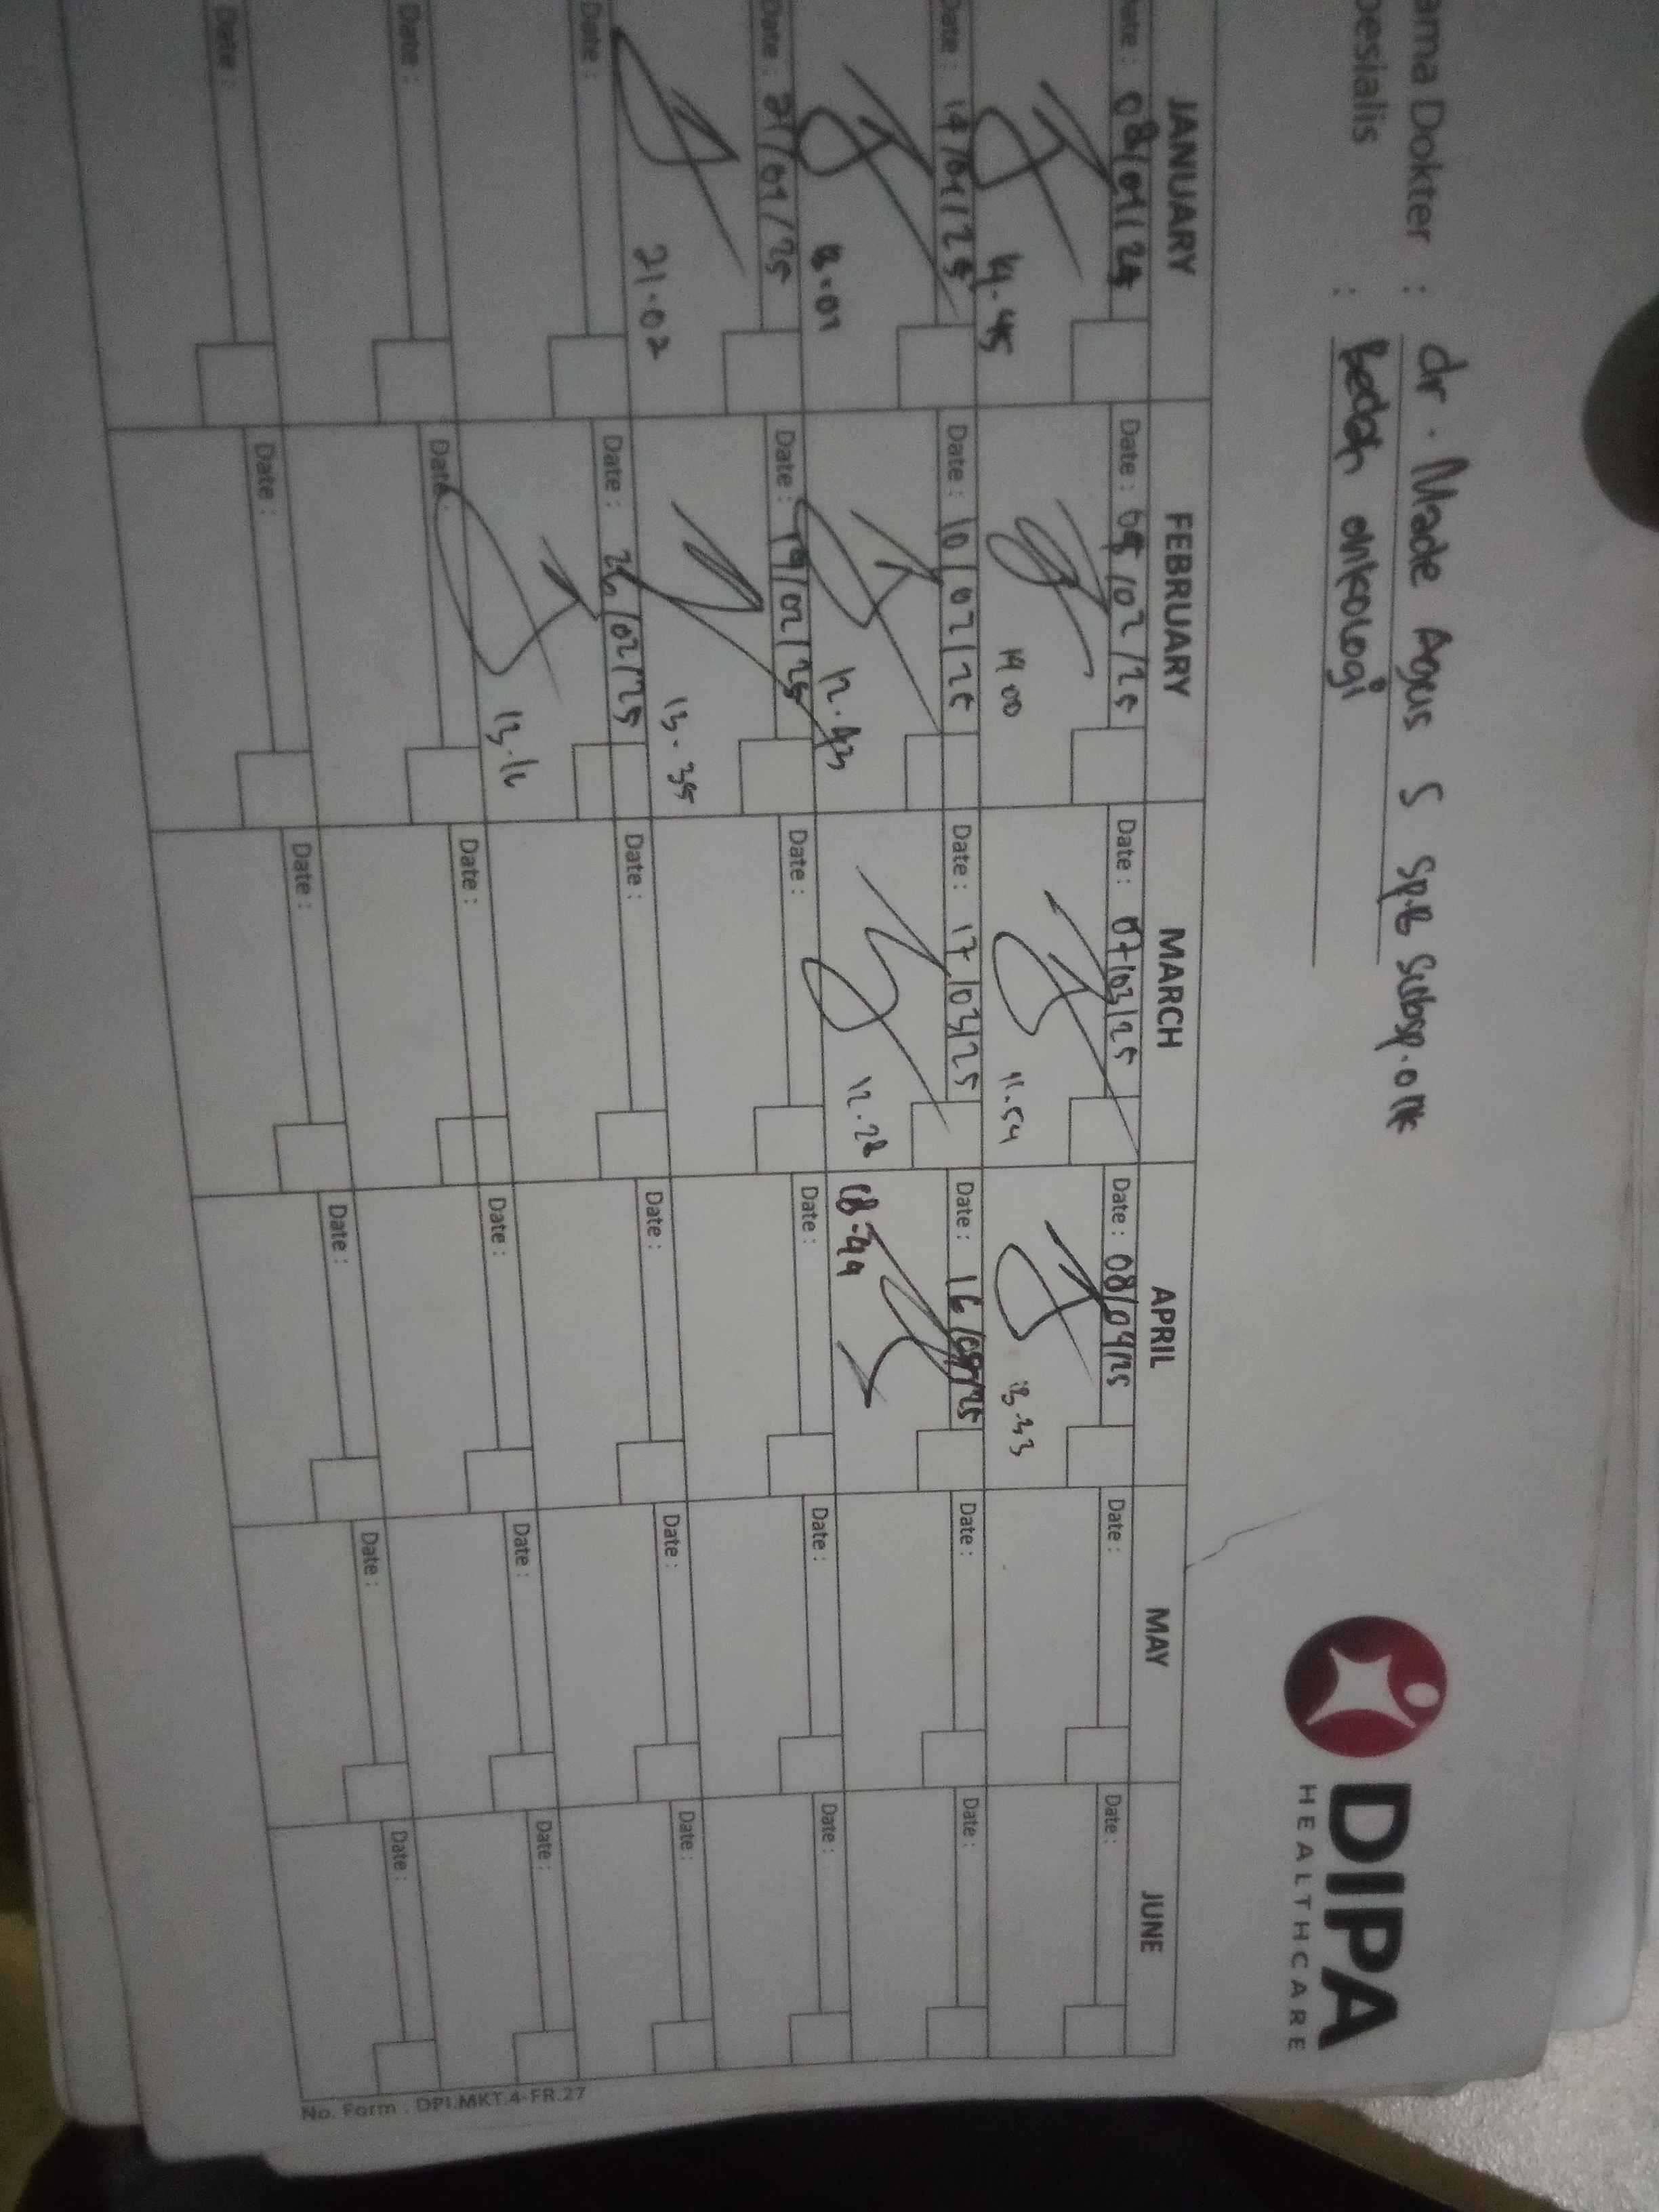 ama Dokter : dr. Made Agus S Sp.B Subsp.onk
pesialis : Bedah onkologi
DIPA
HEALTHCARE
JANUARY FEBRUARY MARCH APRIL MAY JUNE
Date : 08/01/25 Date : 05/02/25 Date : 07/03/25 Date : 08/04/25 Date : Date :
14.45 14 00 11.54 13.33
Date : 14/01/25 Date : 10/02/25 Date : 17/03/25 Date : 16/04/25 Date : Date :
12.43 12.28
Date : 21/01/25 Date : 19/02/25 Date : Date : Date : Date :
21.02 13.35
Date : Date : 26/02/25 Date : Date : Date : Date :
Date : Date : Date : Date : Date : Date :
Date : Date : Date : Date : Date : Date :
No. Form . DPI.MKT.4-FR.27